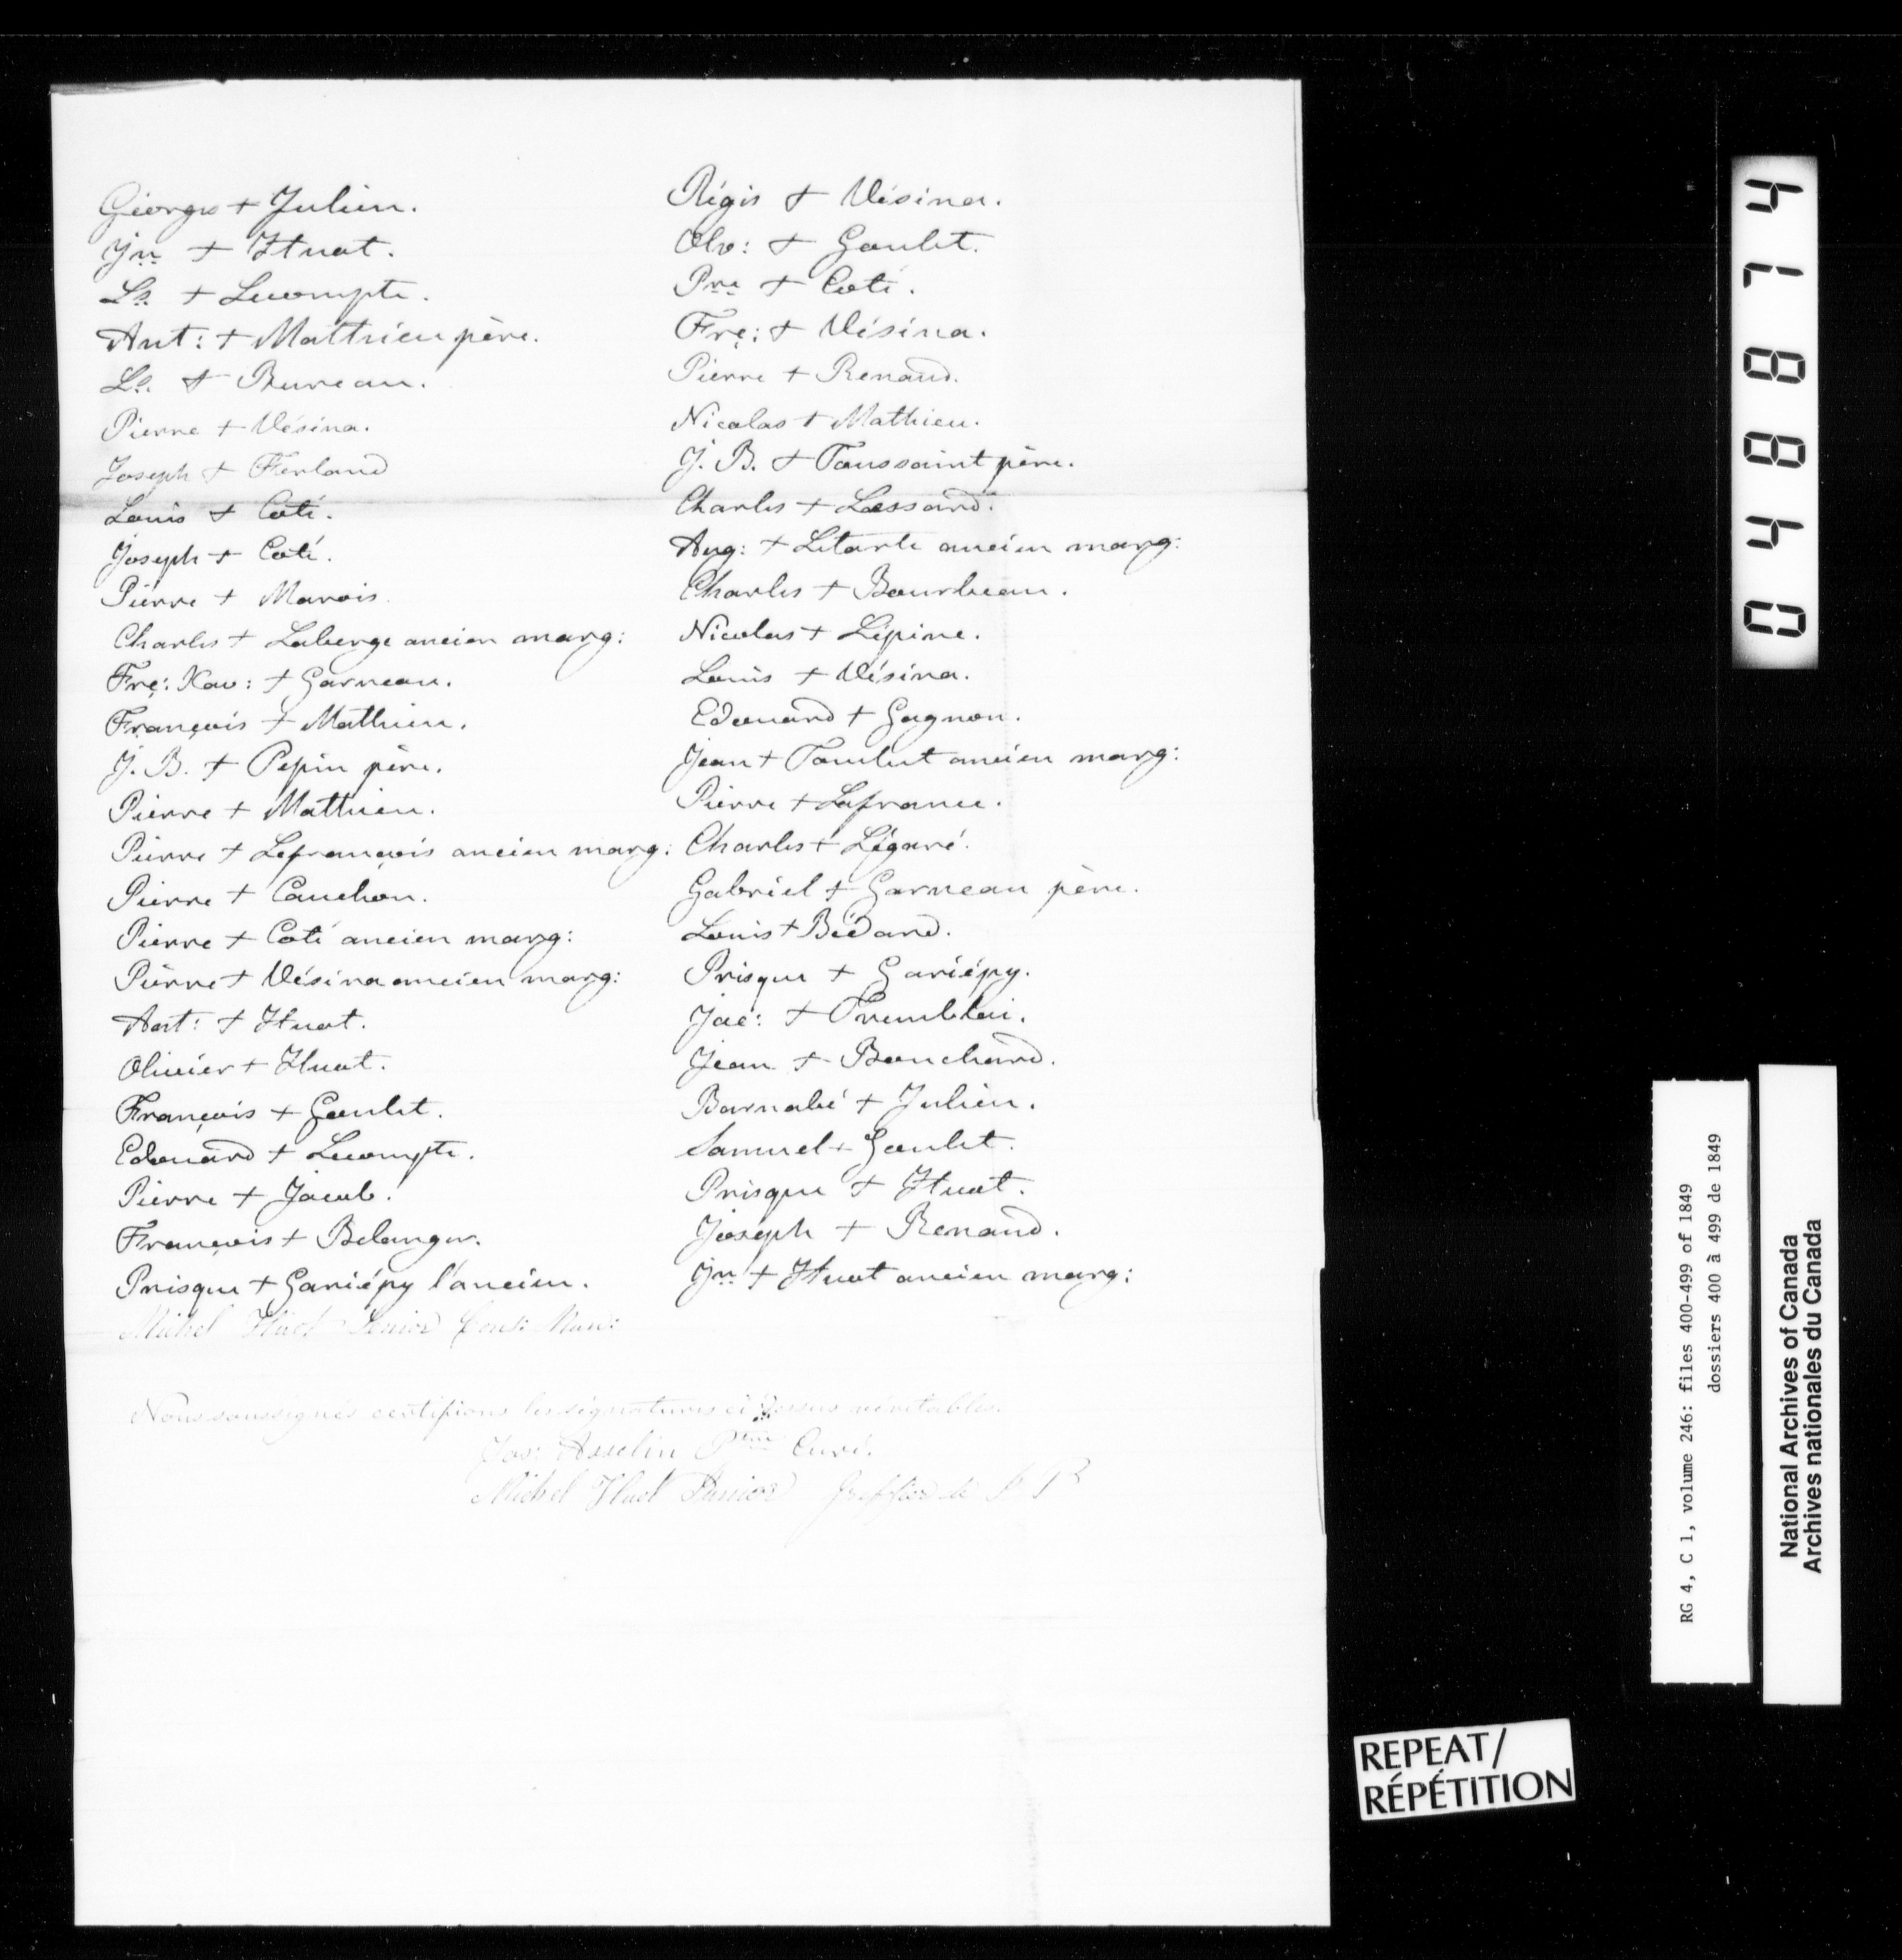 Géorges + Julien.
Jn + Huot.
Ls. + Lecompte.
Ant: + Matthieu père.
Ls. + Bureau.
Pierre + Vésina.
Joseph + Ferland
Louis + Coté.
Joseph + Coté.
Pierre + Marois.
Charles + Laberge ancien marg:
Frç: Xav: + Garneau.
François + Mathieu.
J. B. + Pepin père.
Pierre + Matthieu.
Pierre + Lefrançois ancien marg:
Pierre + Cauchon.
Pierre + Coté ancien marg:
Pierre + Vésina ancien marg:
Ant: + Huot.
Olivier + Huot.
François + Goulet.
Edouard + Lecompte.
Pierre + Jacob.
François + Belanger.
Prisque + Gariépy l'ancien.
Michel Huot Senior Cons: Mun:
Régis + Vésina.
Olv: + Goulet.
Pre + Coté.
Frç: + Vésina.
Pierre + Renaud.
Nicolas + Mathieu.
J. B. + Toussaint père.
Charles + Lessard.
Aug: + Letarte ancien marg:
Charles + Bourbeau.
Nicolas + Lépine.
Louis + Vésina.
Edouard + Gagnon.
Jean + Goulet ancien marg:
Pierre + Lafrance.
Charles + Légaré.
Gabriel + Garneau père.
Louis + Bédard.
Prisque + Gariépy.
Jac: + Tremblai.
Jean + Bouchard.
Barnabé + Julien.
Samuel + Goulet.
Prisque + Huot.
Joseph + Renaud.
Jn + Huot ancien marg:
Nous soussignés certifions les signatures ci dessus véritables.
Jos: Asselin Ptre Curé.
Michel Huot Junior Greffier de
047884
RG 4, C 1, volume 246: files 400-499 of 1849
dossiers 400 à 499 de 1849
National Archives of Canada
Archives nationales du Canada
REPEAT/
RÉPÉTITION